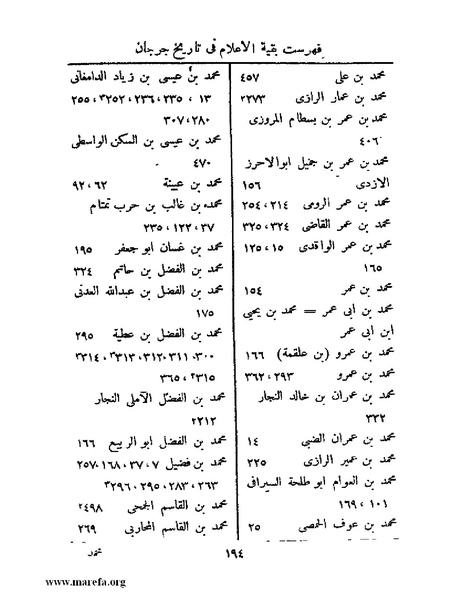 فهرست بقية الأعلام فى تاريخ جرجان
محمد بن على ٤٥٧
محمد بن عمار الرازى ٢٢٧٣
محمد بن عمر بن بسطام المروزى
٤٠٦
محمد بن عمر بن جنيل ابو الاحرز
الازدى ١٥٦
محمد بن عمر الرومى ٢١٤، ٢٥٤
محمد بن عمر القاضى ٣٢٤، ٣٢٥
محمد بن عمر الواقدى ١٥، ١٢٥،
١٦٥
محمد بن عمر ١٥٤
محمد بن ابى عمر = محمد بن يحيى
ابن ابى عمر
محمد بن عمرو (بن علقمة) ١٦٦
محمد بن عمرو ٢٩٣، ٣٦٢
محمد بن عمران بن خالد النجار
٣٣٢
محمد بن عمران الضبى ١٤
محمد بن عمير الرازى ٢٢٥
محمد بن العوام ابو طلحة السيرافى
١٠١، ١٦٩
محمد بن عوف الحمصى ٢٥
محمد بن عيسى بن زياد الدامغانى
١٣، ٢٣٥، ٢٣٦، ٣٢٥٢، ٢٥٥،
٢٨٠، ٣٠٧
محمد بن عيسى بن السكن الواسطى
٤٧٠
محمد بن عيينة ٦٢، ٩٢
محمد بن غالب بن حرب تمتام
٣٧، ١٢٢، ٢٣٥
محمد بن غسان ابو جعفر ١٩٥
محمد بن الفضل بن حاتم ٣٢٤
محمد بن الفضل بن عبدالله العدنى
١٧٥
محمد بن الفضل بن عطية ٢٩٥
٣٠٠، ٣١١، ٣١٢، ٣٣١٣، ٣٣١٤،
٢٣١٥، ٣٦٥
محمد بن الفضل الآملى النجار
٢٢١٢
محمد بن الفضل ابو الربيع ١٦٦
محمد بن فضيل ٧، ٣٧، ١٦٨، ٢٥٧،
٢٦٣، ٢٨٣، ٢٩٥، ٣٢٩٦
محمد بن القاسم الجمحى ٢٤٩٨
محمد بن القاسم المحاربى ٢٦٩
١٩٤
محمد
www.marefa.org